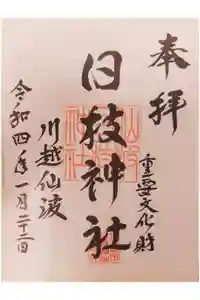 奉拝
重要文化財
日枝神社
川越仙波
令和四年一月二十二日